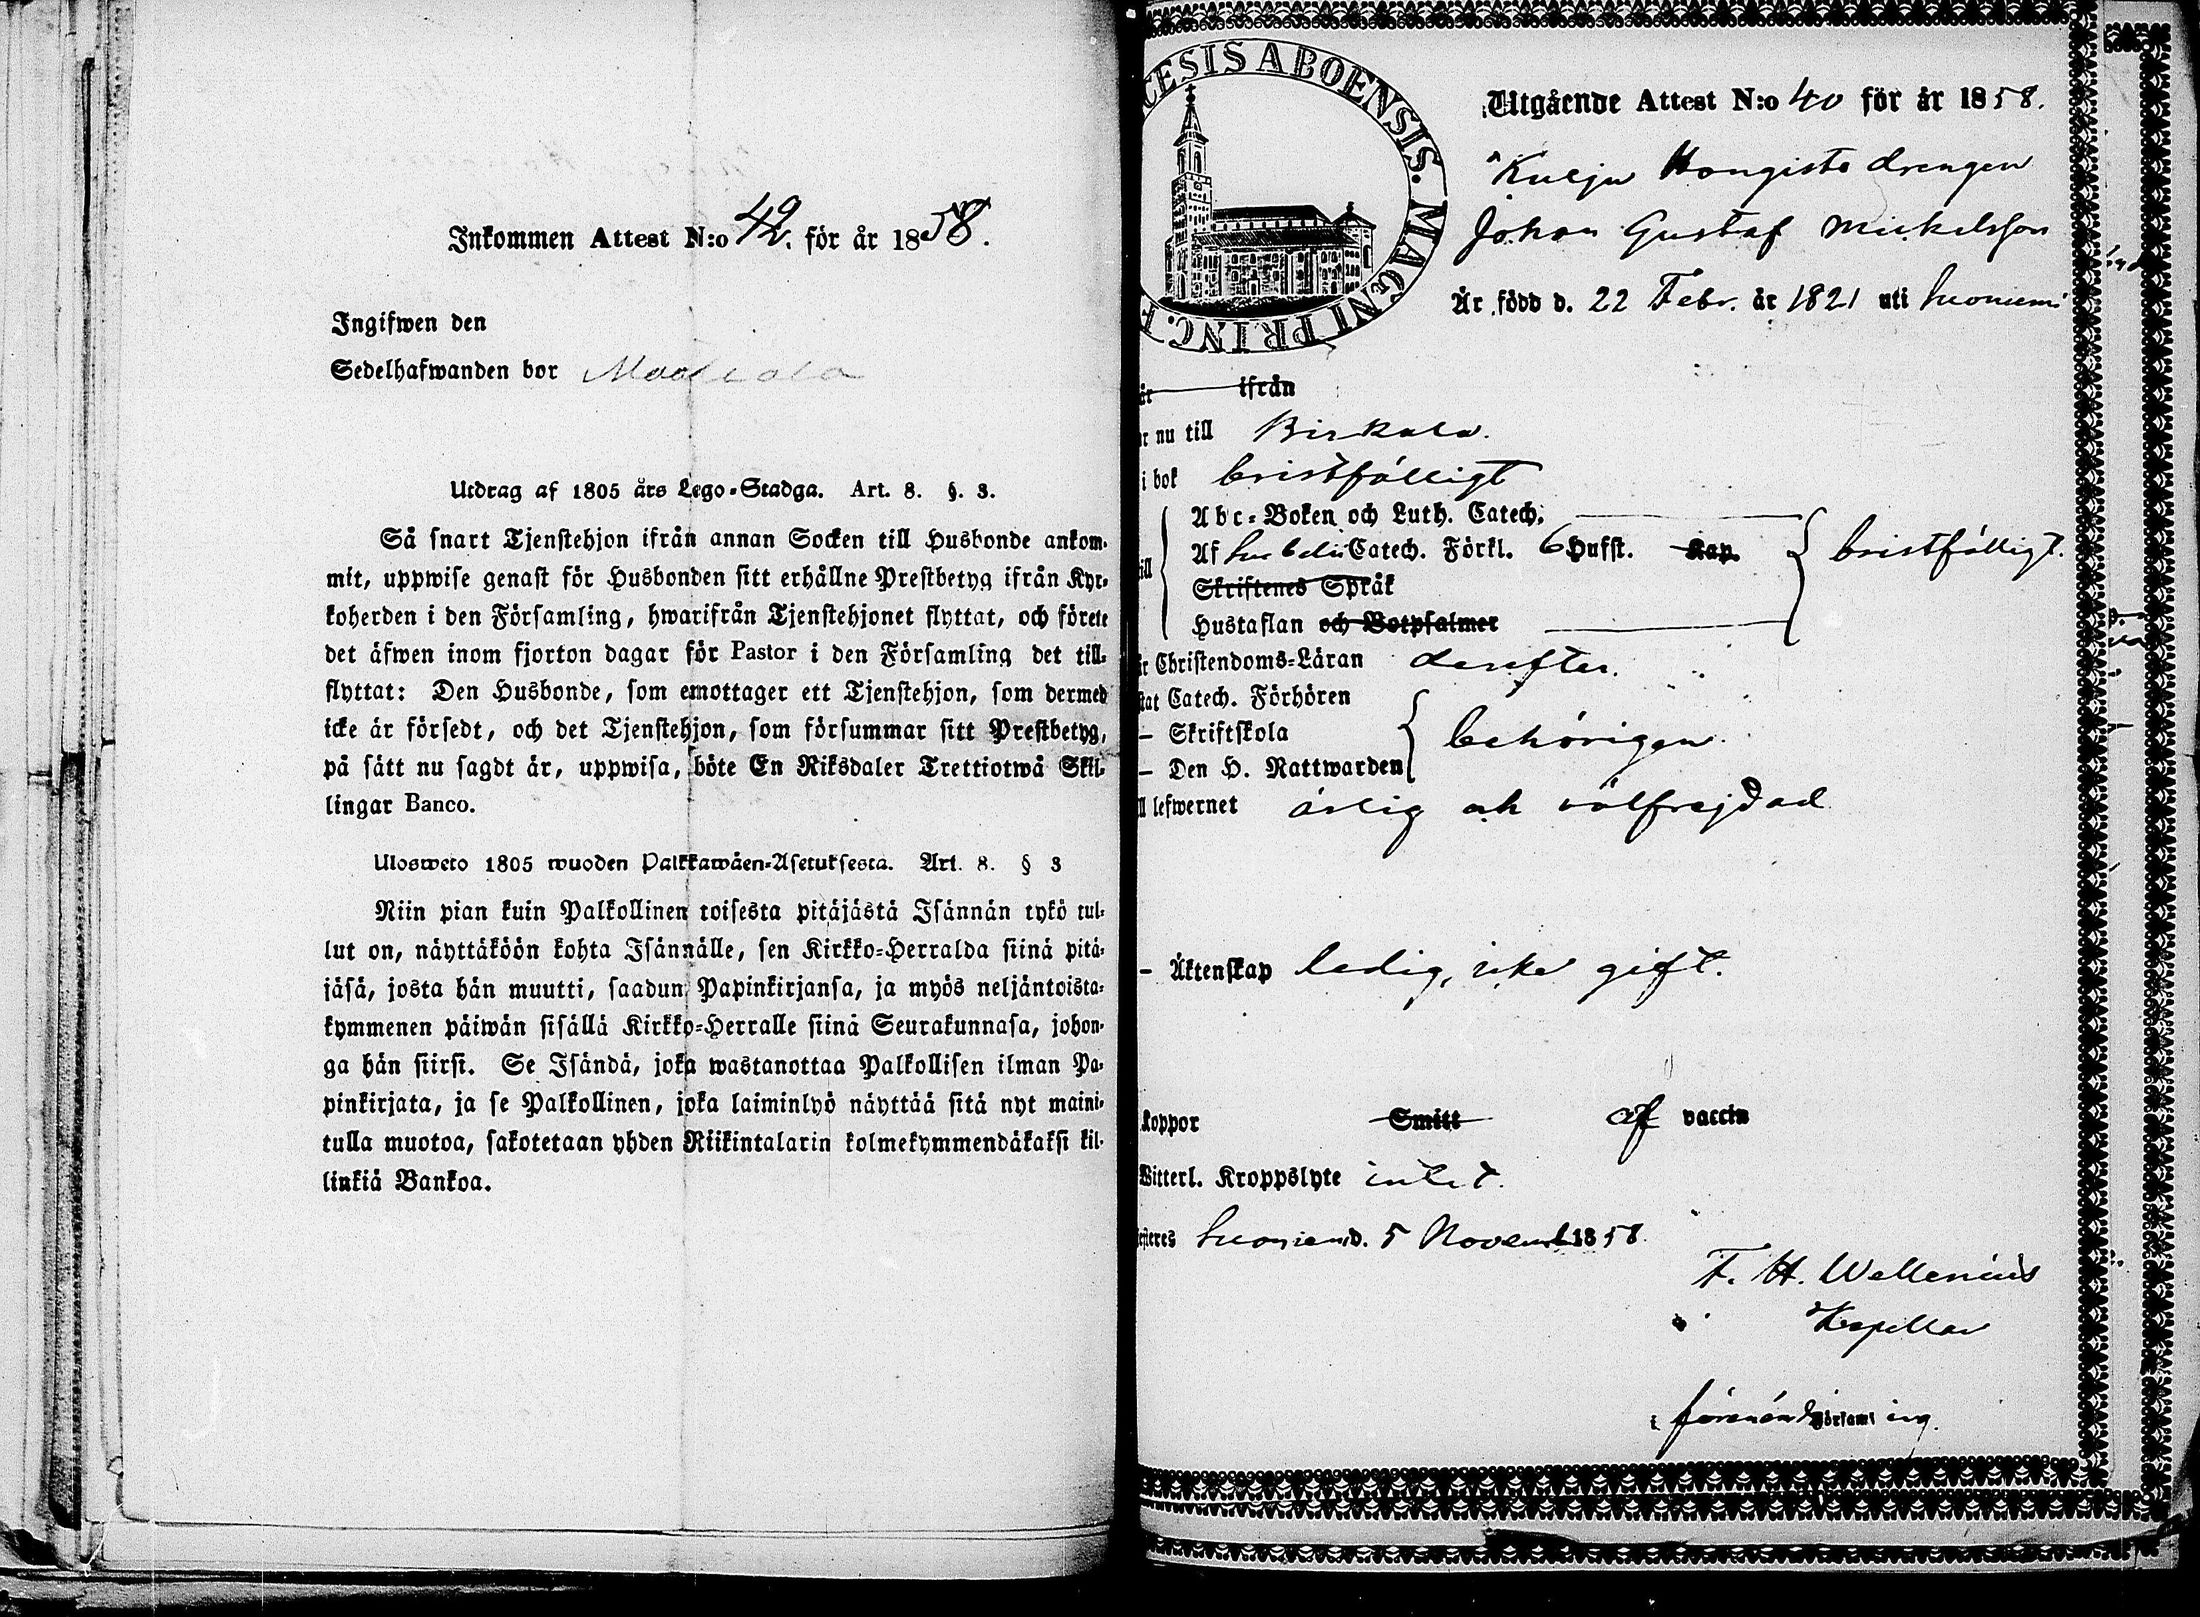 Inkommen Attest N:o 42. för år 1858.
Ingifwen den
Sedelhafwanden bor
Utdrag af 1805 års Lego-Stadga. Art. 8. §. 3.
Så snart Tjenstehjon ifrån annan Socken till Husbonde ankom-
mit, uppwise genast för Husbonden sitt erhållne Prestbetyg ifrån Kyr-
koherden i den Församling, hwarifrån Tjenstehjonet flyttat, och förete
det äfwen inom fjorton dagar för Pastor i den Församling det till-
flyttat: Den Husbonde, som emottager ett Tjenstehjon, som dermed
icke är försedt, och det Tjenstehjon, som försummar sitt Prestbetyg,
på sätt nu sagdt är, uppwisa, böte En Riksdaler Trettiotwå Skil-
lingar Banco.
Ulosweto 1805 wuoden Palkkawäen-Asetuksesta. Art. 8. § 3
Niin pian kuin Palkollinen toisesta pitäjästä Isännän tykö tul-
lut on, näyttäköön kohta Isännälle, sen Kirkko-Herralda siinä pitä-
jäsä, josta hän muutti, saadun Papinkirjansa, ja myös neljäntoista-
kymmenen päiwän sisällä Kirkko-Herralle siinä Seurakunnasa, johon-
ga hän siirsi. Se Isändä, joka wastanottaa Palkollisen ilman Pa-
pinkirjata, ja se Palkollinen, joka laiminlyö näyttää sitä nyt maini-
tulla muotoa, sakotetaan yhden Riikintalarin kolmekymmendäkaksi kil-
linkiä Bankoa.
CESIS ABOENSIS. MAGNI PRINC. F
Utgående Attest N:o 40 för år 1858.
Kulju Hongisto drengen
Johan Gustaf Mickelsson
Är född d. 22 Febr. år 1821 uti Suoniemi
är ifrån
r nu till Birkala.
i bok bristfälligt
Abc-Boken och Luth. Catech.
Af Catech. Förkl. 6 Hufst. Kap. bristfälligt.
ill Skriftenes Språk
Hustaflan och Botpsalmer
är Christendoms-Läran derefter.
stat Catech. Förhören
– Skriftskola behörigen.
– Den H. Nattwarden
ll lefwernet ärlig och välfrejdad
– Äktenskap ledig, icke gift.
koppor Smitt af vaccin
Witterl. Kroppslyte intet.
esteres Suoniemi d. 5 Novemb. 1858.
F. H. Wellenius
Kapellan
i förenämnda Församling.